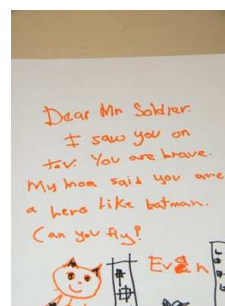 Dear Mr Soldier.
I saw you on
t.v. You are brave.
My mom said you are
a hero like batman.
Can you fly?
Evan